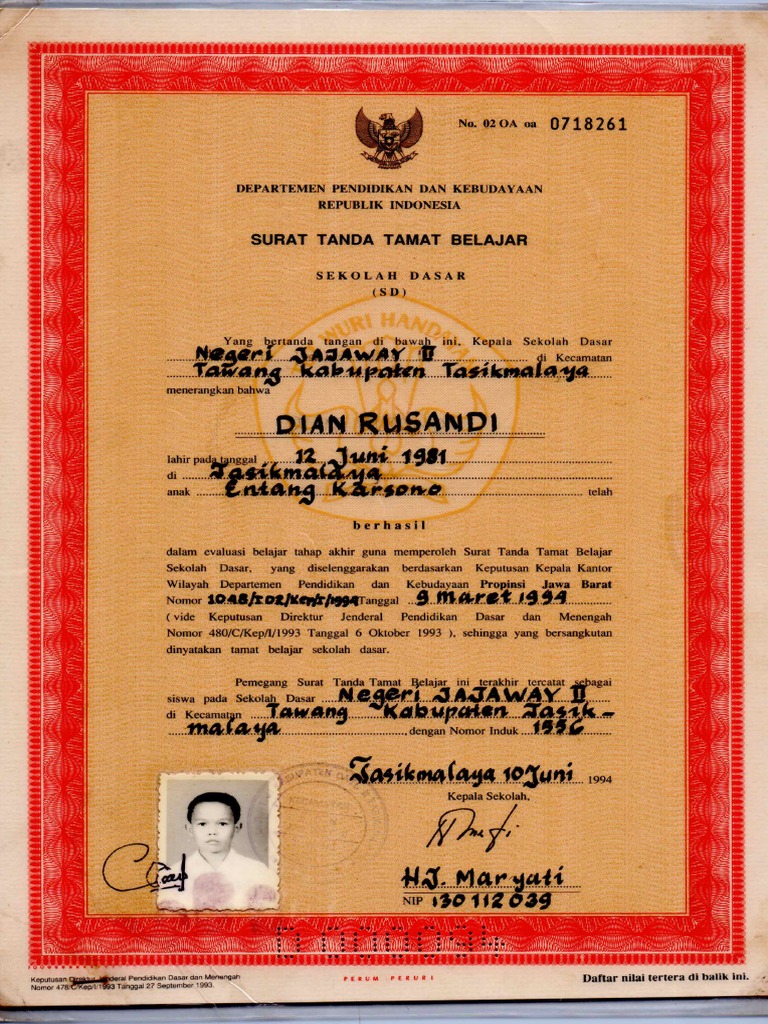 No. 02 OA oa 0718261
DEPARTEMEN PENDIDIKAN DAN KEBUDAYAAN
REPUBLIK INDONESIA
SURAT TANDA TAMAT BELAJAR
SEKOLAH DASAR
(SD)
Yang bertanda tangan di bawah ini, Kepala Sekolah Dasar
Negeri JAJAWAY II di Kecamatan
Tawang Kabupaten Tasikmalaya
menerangkan bahwa
DIAN RUSANDI
lahir pada tanggal 12 Juni 1981
di Tasikmalaya
anak Entang Karsono telah
berhasil
dalam evaluasi belajar tahap akhir guna memperoleh Surat Tanda Tamat Belajar
Sekolah Dasar, yang diselenggarakan berdasarkan Keputusan Kepala Kantor
Wilayah Departemen Pendidikan dan Kebudayaan Propinsi Jawa Barat
Nomor 1048/I02/Kep/I/1994 Tanggal 9 Maret 1994
( vide Keputusan Direktur Jenderal Pendidikan Dasar dan Menengah
Nomor 480/C/Kep/I/1993 Tanggal 6 Oktober 1993 ), sehingga yang bersangkutan
dinyatakan tamat belajar sekolah dasar.
Pemegang Surat Tanda Tamat Belajar ini terakhir tercatat sebagai
siswa pada Sekolah Dasar Negeri JAJAWAY II
di Kecamatan Tawang Kabupaten Tasik-
malaya dengan Nomor Induk 1556
Tasikmalaya 10 Juni 1994
Kepala Sekolah,
HJ. Maryati
NIP 130112039
Keputusan Direktur Jenderal Pendidikan Dasar dan Menengah
Nomor 478/C/Kep/I/1993 Tanggal 27 September 1993.
PERUM PERURI
Daftar nilai tertera di balik ini.